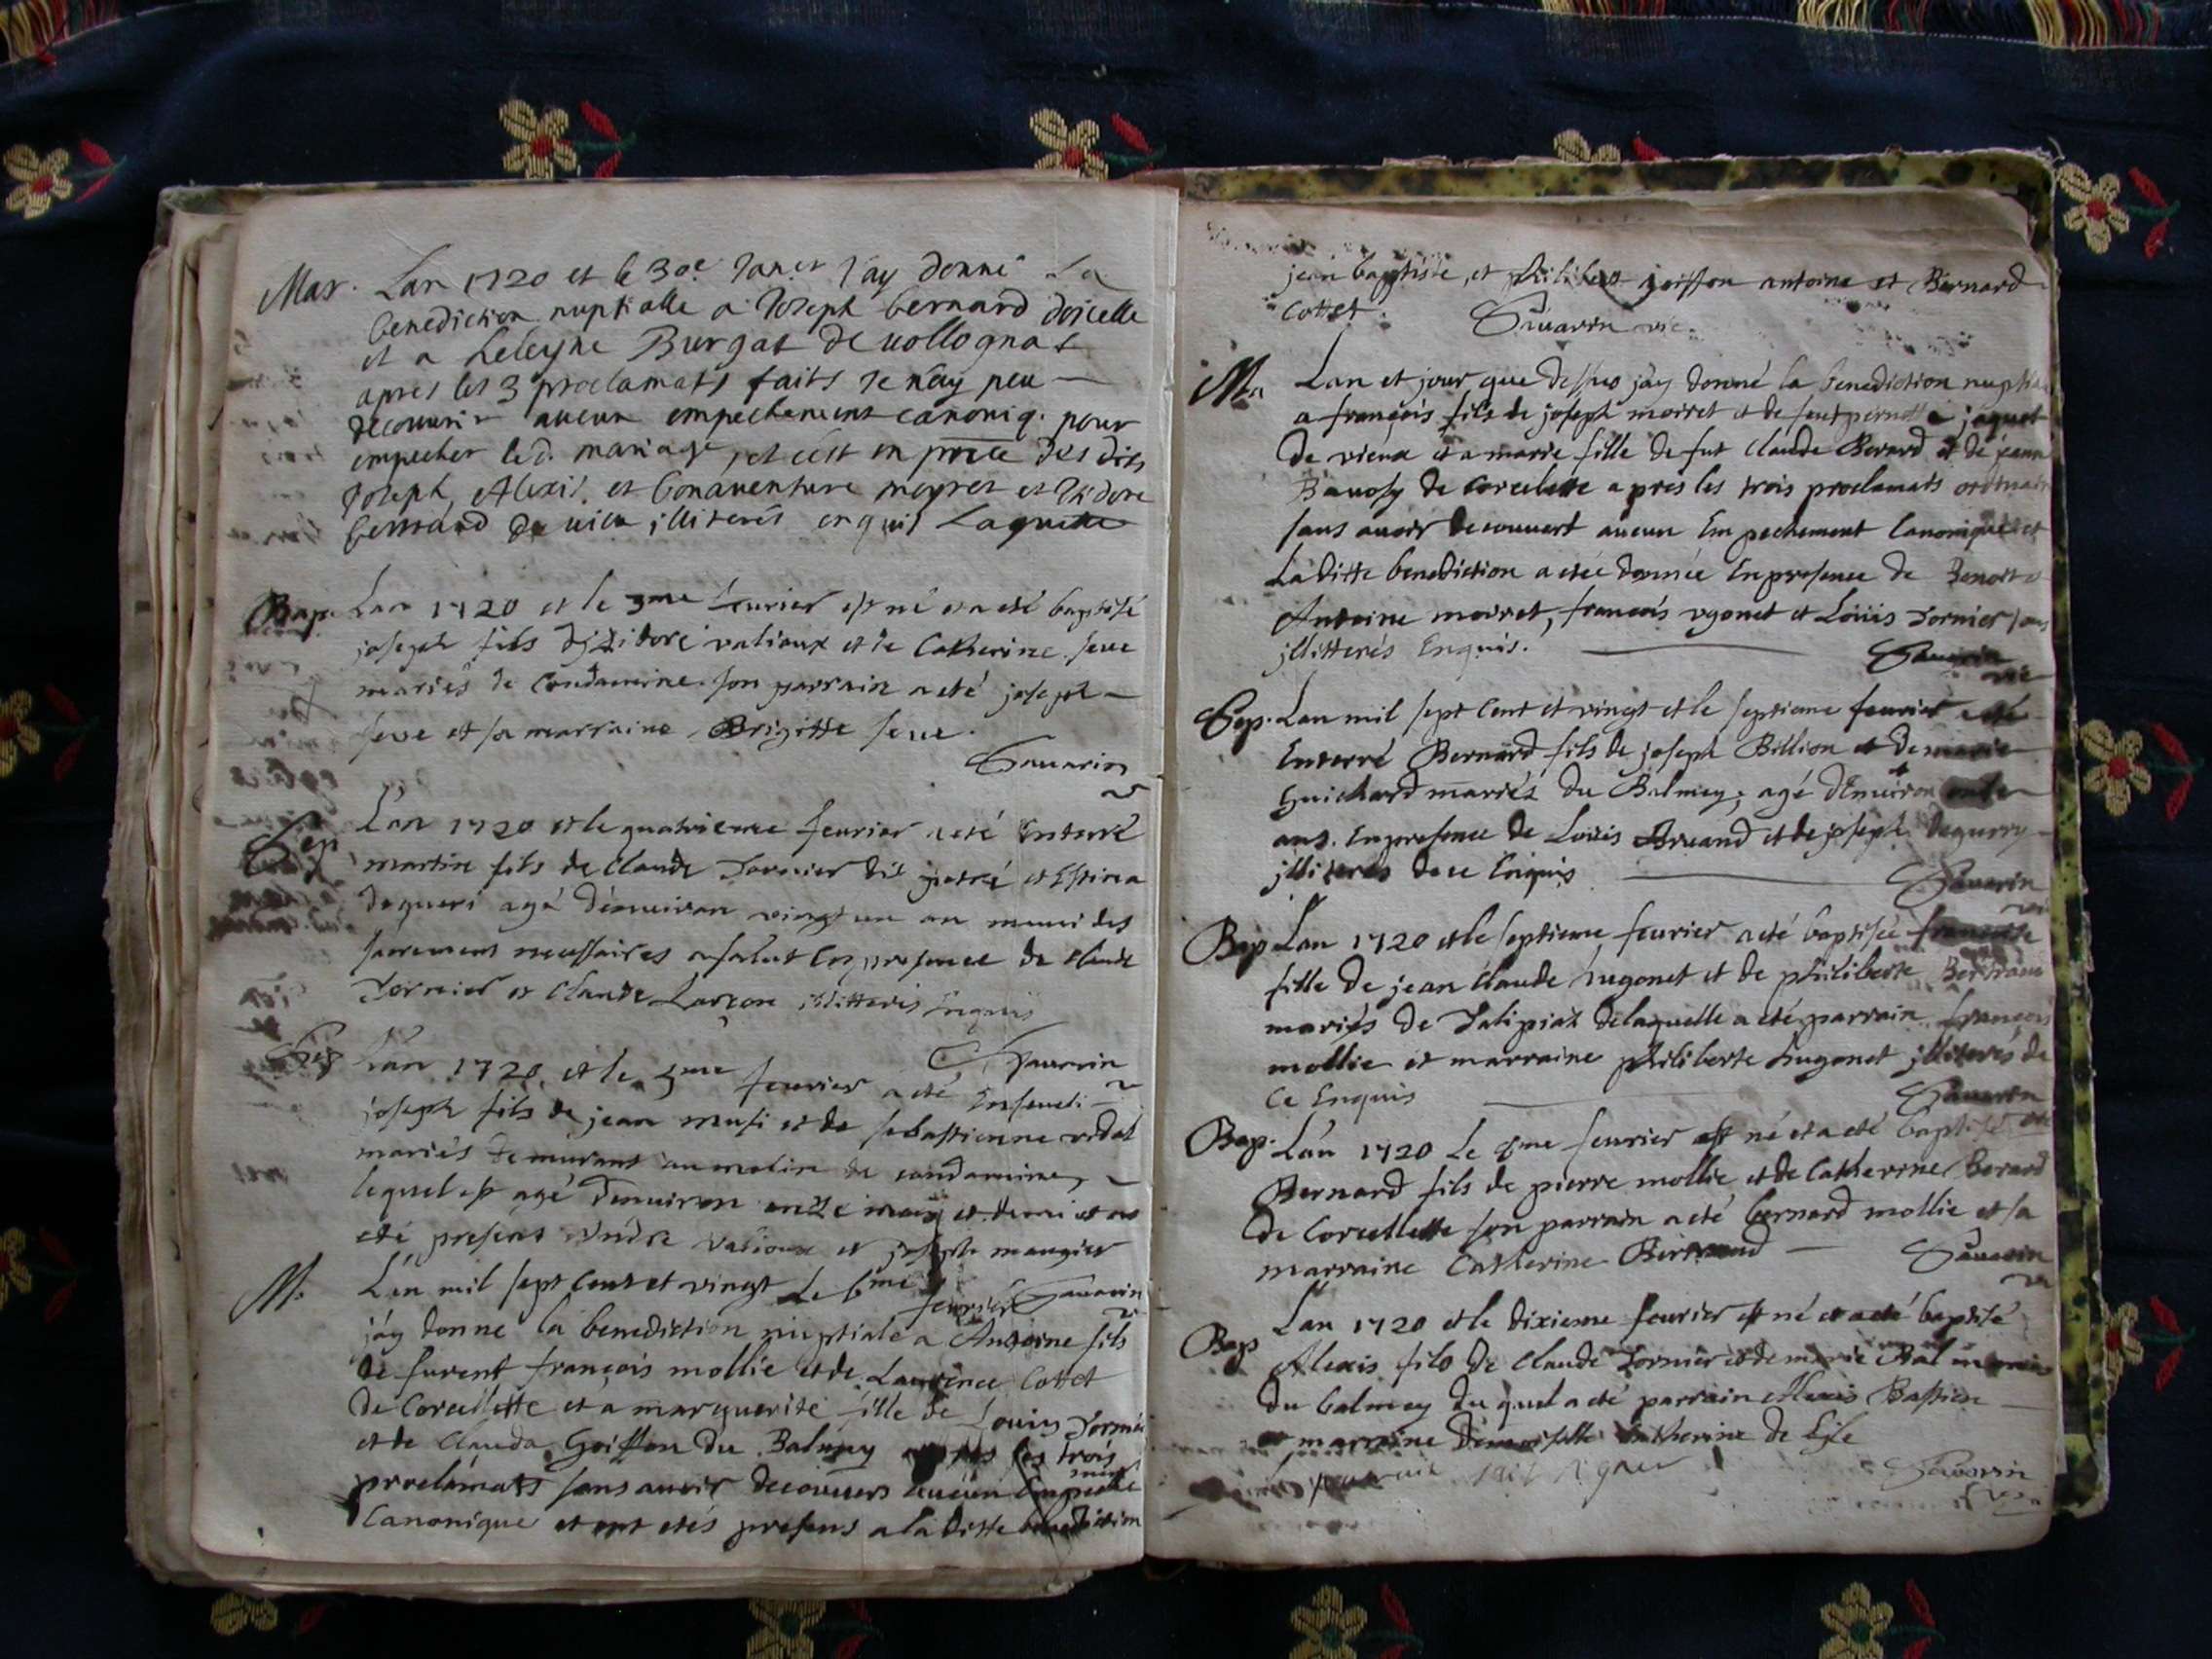 Mar. Lan 1720 et le 30e Janer Jay donné La
benediction nuptialle a Joseph bernard doicelle
et a Burgat de vollognat
apres les 3 proclamats faits Je n'ay peu
decouurir aucun empechement canoniq. pour
empecher led. mariage, et c'est en pnce des dits
Joseph, Alexis, et bonauenture moyret et Isidore
de illiterés enquis Laquette
Bap. Lan 1720 et le 3me feurier est né et a eté baptisé
joseph fils dizidore valioux et de Catherine seue
mariés de Condamine son parrain a eté joseph
seve et sa marraine Brigitte seue.
Sauarin
Sep L'an 1720 et le quatrieme feurier a eté Enterré
martin fils de Claude Tornier dit et Estiena
dequeri agé d'enuiron vingt un an muni des
sacremens necessaires a salut En presence de Claude
Tornier et Claude illitterés Enquis
Sauarin
Sep L'an 1720. et le 5me feurier a eté Enseueli
joseph fils de jean musi et de sebastienne vidal
mariés demurant au molin de condamine,
lequel est agé d'enuiron onze mois et demi et ont
eté presens André Valioux et joseph maugier
Sauarin
M. L'an mil sept Cent et vingt Le 6me feurier
j'ay donne la benediction nuptiale a Antoine fils
de furent françois mollie et de Laurence Cottet
de Corcellette et a marguerite fille de Louis Tornier
et de Clauda Goiffon du Balmey apres les trois
proclamats sans auoir decouuers aucun Empeche ment
Canonique et ont etés presens a la ditte benediction
jean baptiste, et philibert goiffon antoine et Bernard
Cottet. Sauarin vic.
Ma Lan et jour que dessus j'ay donné la benediction nuptia
a françois fils de joseph moirret et de jaquet
de vieux et a marie fille de fut Claude Berard et de jeann
de Corcelette apres les trois proclamats
sans auoir decouuert aucun Empechement Canonique et
La ditte benediction a etée donnée En presence de Benoit et
Antoine moirret, françois vgonet et Louis Tornier
jllitterés Enquis. Sauarin
vic
Sep. Lan mil sept Cent et vingt et le septieme feurier a eté
Enterré Bernard fils de joseph Billion et de marie
Guichard mariés du Balmey, agé d'Enuiron
ans. En presence de Louis Bruand et de joseph Dequerry
jlliterés de ce Enquis Sauarin
Bap Lan 1720 et le septieme feurier a eté baptisée françoise
fille de jean Claude hugonet et de philiberte
mariés de Talipiat de laquelle a eté parrain françois
mollie et marraine philiberte hugonet jlliterés de
Ce Enquis Sauarin
Bap. L'an 1720 Le 8me feurier est né et a eté baptisé
Bernard fils de pierre mollie et de Catherine Berard
de Corcellette son parrain a eté bernard mollie et sa
marraine Catherine Bertrand Sauarin
Bap Lan 1720 et le dixieme feurier est né et a eté baptisé
Alexis fils de Claude Tornier et de marie Bal mariés
du balmey du quel a eté parrain Alexis Bastien
et marraine demoiselle Catherine de Lisle
signer Sauarin